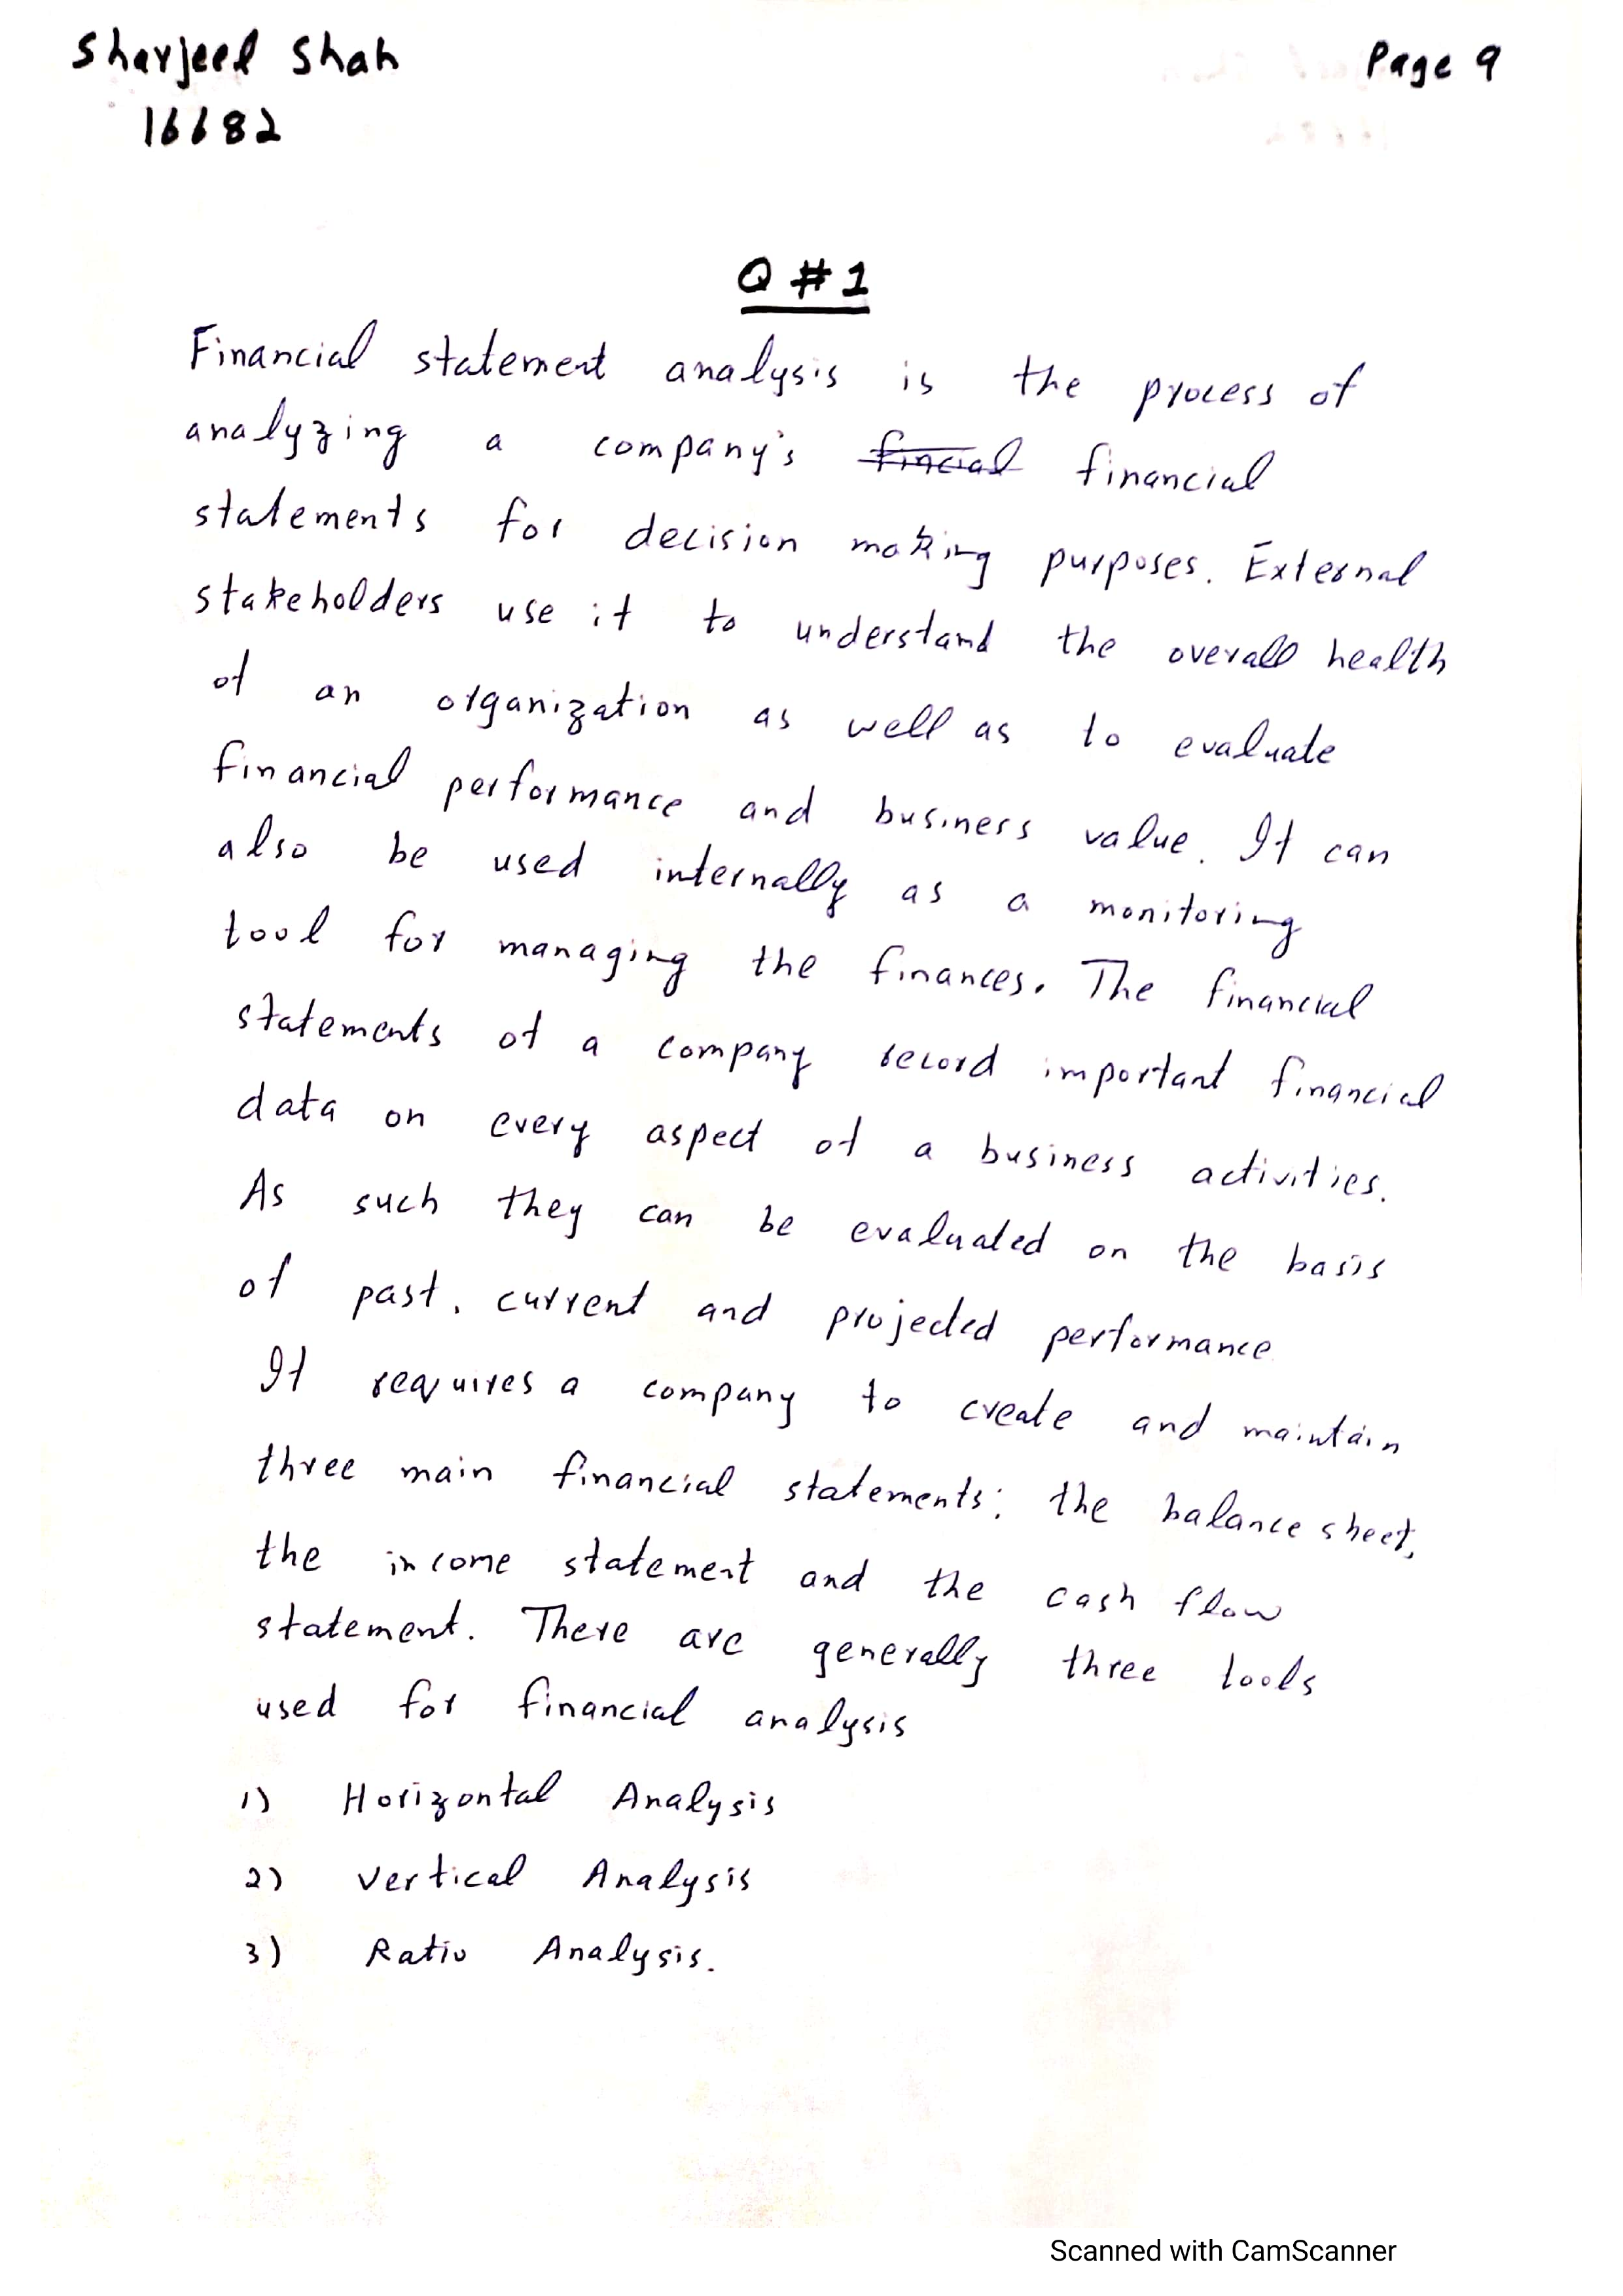 Sharjeel Shah
Page 9
16682
Q #1
Financial statement analysis is the process of
analyzing a company's fincial financial
statements for decision making purposes. External
stakeholders use it to understand the overall health
of an organization as well as to evaluate
financial performance and business value. It can
also be used internally as a monitoring
tool for managing the finances. The financial
statements of a company record important financial
data on every aspect of a business activities.
As such they can be evaluated on the basis
of past, current and projected performance
It requires a company to create and maintain
three main financial statements: the balance sheet,
the income statement and the cash flow
statement. There are generally three tools
used for financial analysis
1) Horizontal Analysis
2) Vertical Analysis
3) Ratio Analysis.
Scanned with CamScanner